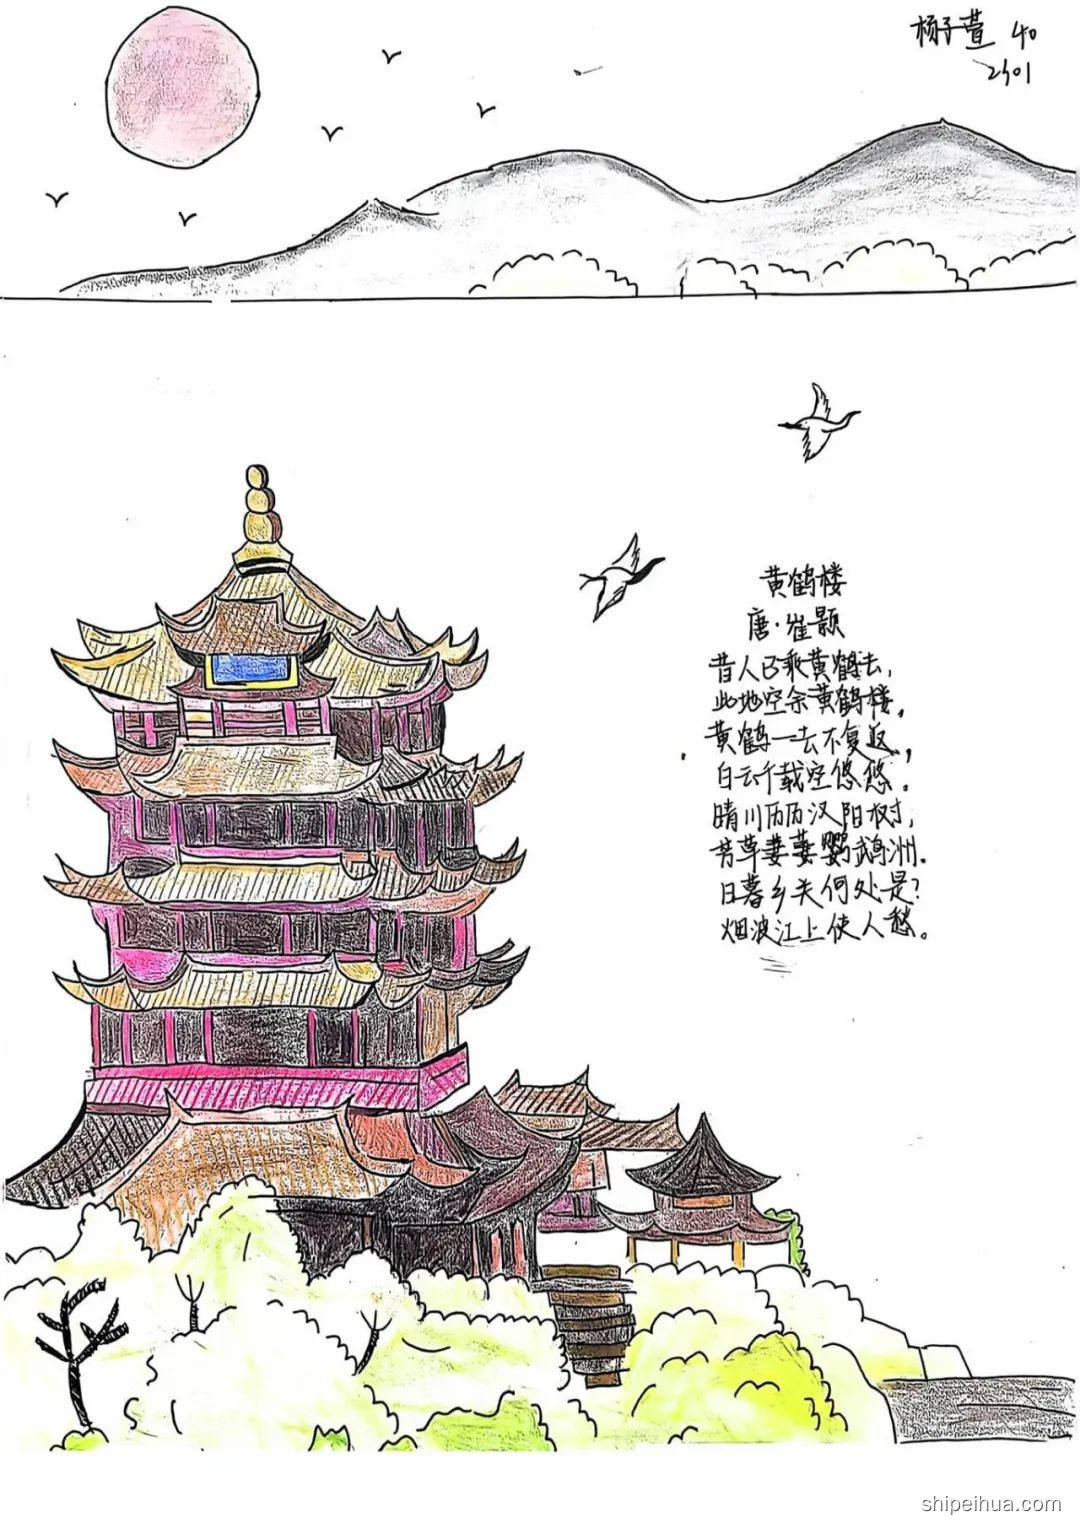 杨子萱 40
2401
黄鹤楼
唐·崔颢
昔人已乘黄鹤去，
此地空余黄鹤楼。
黄鹤一去不复返，
白云千载空悠悠。
晴川历历汉阳树，
芳草萋萋鹦鹉洲。
日暮乡关何处是？
烟波江上使人愁。
shipeihua.com